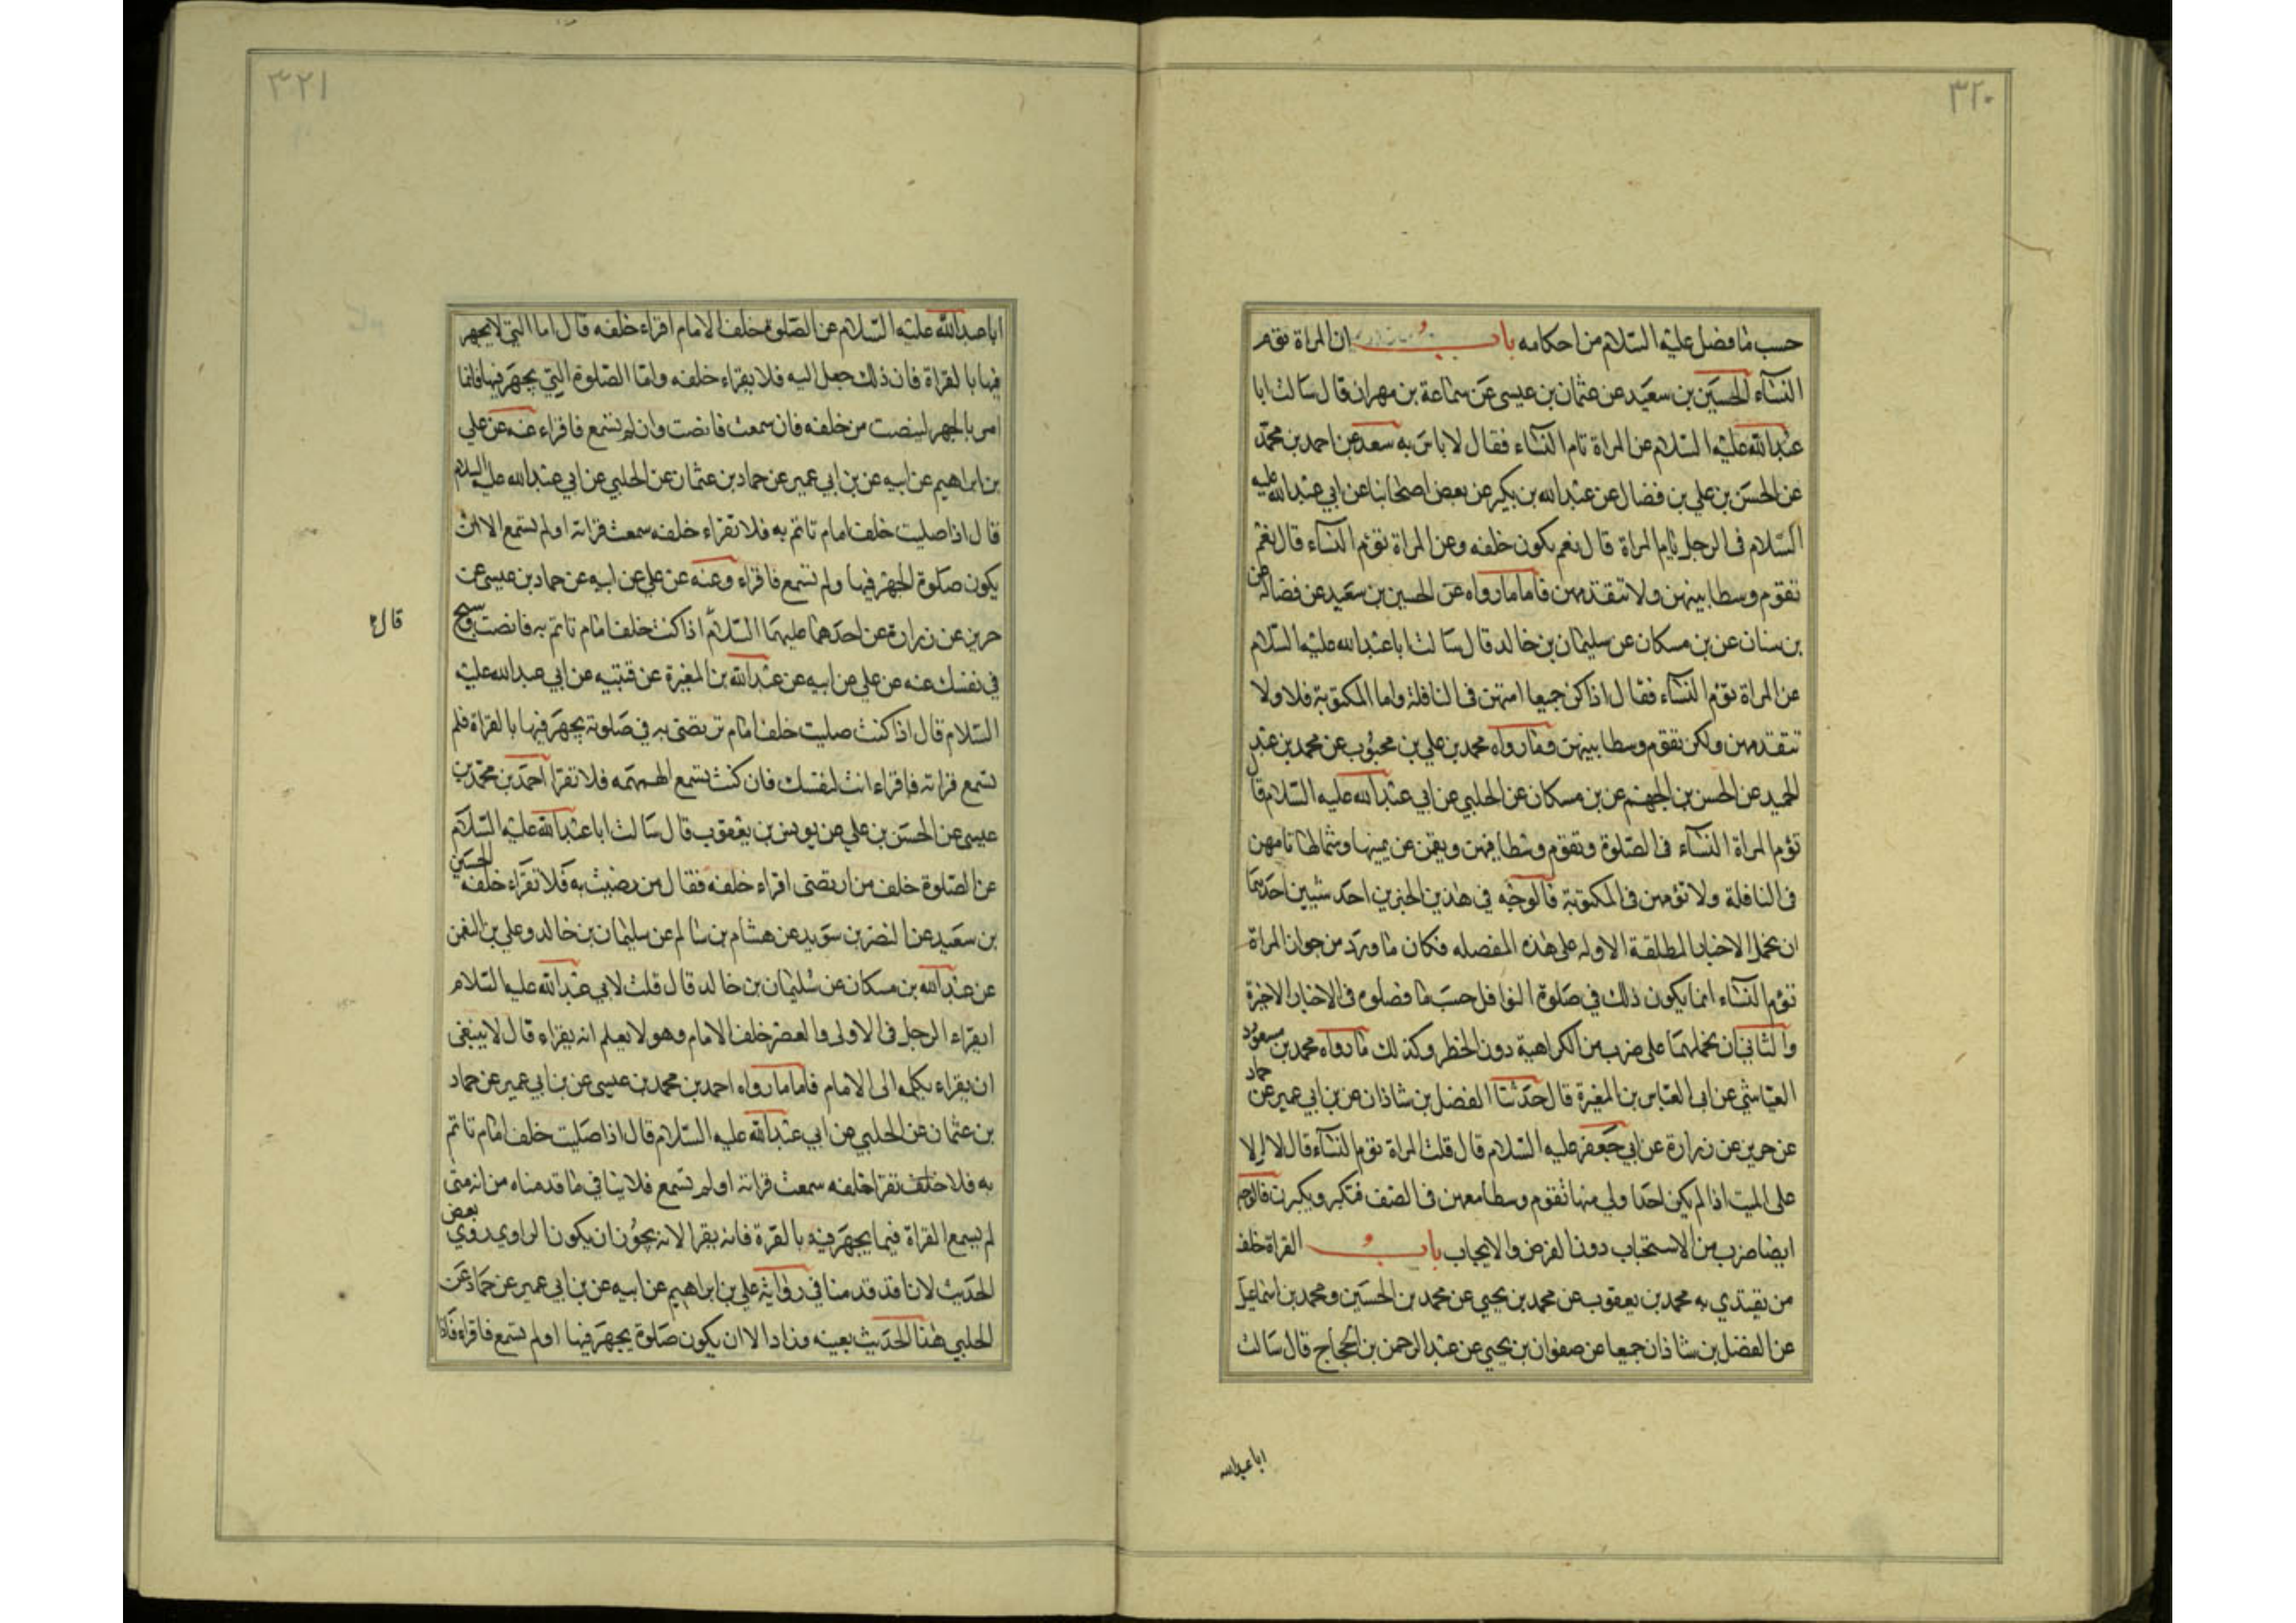 ٣٢٠
حسب ما فصل عليه السلام من احكامه باب ان المراة تؤم
النساء الحسين بن سعيد عن عثمان بن عيسى عن سماعة بن مهران قال سالت ابا
عبد الله عليه السلام عن المراة تام النساء فقال لا باس به سعد عن احمد بن محمد
عن الحسن بن علي بن فضال عن عبد الله بن بكير عن بعض اصحابنا عن ابي عبد الله عليه
السلام في الرجل يام المراة قال نعم يكون خلفه وعن المراة تؤم النساء قال نعم
تقوم وسطا بينهن ولا تتقدمهن فاما ما رواه عن الحسين بن سعيد عن فضالة عن
بن سنان عن بن مسكان عن سليمان بن خالد قال سالت ابا عبد الله عليه السلام
عن المراة تؤم النساء فقال اذا كن جميعا امتهن في النافلة واما المكتوبة فلا ولا
تتقدمهن ولكن تقوم وسطا بينهن وما رواه محمد بن علي بن محبوب عن محمد بن عبد
الحميد عن الحسن بن الجهم عن بن مسكان عن الحلبي عن ابي عبد الله عليه السلام قال
تؤم المراة النساء في الصلوة وتقوم وسطا فيهن ويقمن عن يمينها وشمالها تامهن
في النافلة ولا تؤمهن في المكتوبة فالوجه في هذين الخبرين احد شيين احدهما
ان نحمل الاخبار المطلقة الاولة على هذه المفصله فكان ما ورد من جواز المراة
تؤم النساء انما يكون ذلك في صلوة النوافل حسب ما فصلوه في الاخبار الاخيرة
والثاني ان نحملهما على ضرب من الكراهية دون الحظر وكذلك ما رواه محمد بن مسعود
العياشي عن ابي العباس بن المغيرة قال حدثنا الفضل بن شاذان عن بن ابي عمير عن حماد
عن حريز عن زرارة عن ابي جعفر عليه السلام قال قلت المراة تؤم النساء قال لا الا
على الميت اذا لم يكن احدا ولي منها تقوم وسطا معهن في الصف فتكبر ويكبرن فالوجه
ايضا ضرب من الاستحباب دون الفرض والايجاب باب القراة خلف
من يقتدي به محمد بن يعقوب عن محمد بن يحيى عن محمد بن الحسين ومحمد بن اسماعيل
عن الفضل بن شاذان جميعا عن صفوان بن يحيي عن عبد الرحمن بن الحجاج قال سالت
ابا عبد الله
٣٢١
ابا عبد الله عليه السلام عن الصلوة خلف الامام اقراء خلفه قال اما التي لا يجهر
فيها بالقراة فان ذلك جعل اليه فلا يقراء خلفه واما الصلوة التي يجهر فيها فانما
امر بالجهر لينصت من خلفه فان سمعت فانصت وان لم تسمع فاقراء عنه عن علي
بن ابراهيم عن ابيه عن بن ابي عمير عن حماد بن عثمان عن الحلبي عن ابي عبد الله عليه السلام
قال اذا صليت خلف امام تاتم به فلا تقراء خلفه سمعت قراته او لم تسمع الا ان
يكون صلوة الجهر فيها ولم تسمع فاقراء وعنه عن علي عن ابيه عن حماد بن عيسى عن
حريز عن زرارة عن احدهما عليهما السلام اذا كنت خلف امام تاتم به فانصت وسبح
قال
في نفسك عنه عن علي عن ابيه عن عبد الله بن المغيرة عن قتيبه عن ابي عبد الله عليه
السلام قال اذا كنت صليت خلف امام ترتضى به في صلوته يجهر فيها بالقراة فلم
تسمع قراته فاقراء انت لنفسك فان كنت تسمع الهمهمه فلا تقرا احمد بن محمد بن
عيسى عن الحسن بن علي عن يونس بن يعقوب قال سالت ابا عبد الله عليه السلام
عن الصلوة خلف من ارتضى اقراء خلفه فقال من رضيت به فلا تقراء خلفه الحسين
بن سعيد عن النضر بن سويد عن هشام بن سالم عن سليمان بن خالد وعلي بن النعمن
عن عبد الله بن مسكان عن سليمان بن خالد قال قلت لابي عبد الله عليه السلام
ايقراء الرجل في الاولى والعصر خلف الامام وهو لا يعلم انه يقراء قال لا ينبغى
ان يقراء يكله الى الامام فاما ما رواه احمد بن محمد بن عيسى عن بن ابي عمير عن حماد
بن عثمان عن الحلبي عن ابي عبد الله عليه السلام قال اذا صليت خلف امام تاتم
به فلا خلف تقرا خلفه سمعت قراته او لم تسمع فلا ينافي ما قدمناه من انه متى
لم يسمع القراة فيما يجهر فيه بالقرة فانه يقرا لانه يجوز ان يكون الراوي روي بعض
الحديث لانا قد قدمنا في رواية علي بن ابراهيم عن ابيه عن بن ابي عمير عن حماد عن
الحلبي هذا الحديث بعينه وزاد الا ان يكون صلوة يجهر فيها او لم تسمع فاقراء فاذا